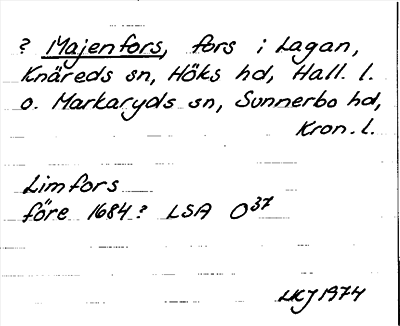 ? Majenfors, fors i Lagan,
Knäreds sn, Höks hd, Hall. l.
o. Markaryds sn, Sunnerbo hd,
Kron. l.
Limfors
före 1684? LSA O37
LKJ 1974